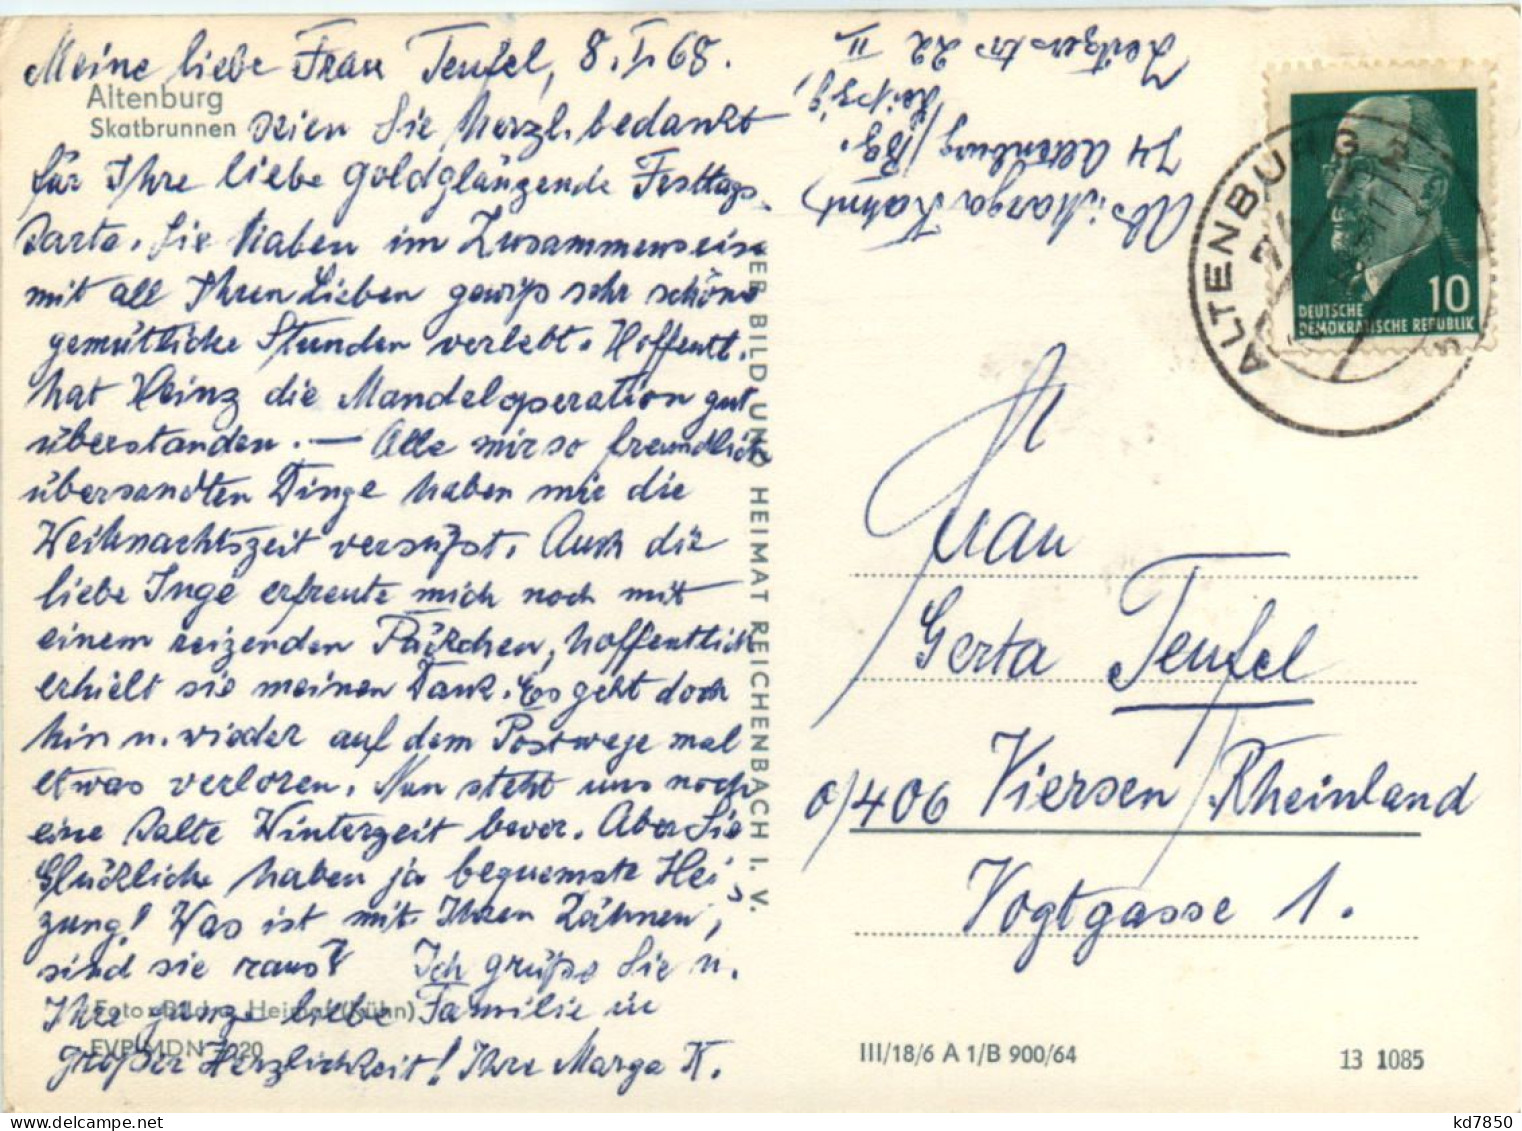 Meine liebe Frau Teufel, 8.I.68.
Altenburg
Skatbrunnen
seien Sie herzl. bedankt
für Ihre liebe goldglänzende Festtags-
karte. Sie haben im Zusammensein
mit all Ihren Lieben gewiß sehr schöne
gemütliche Stunden verlebt. Hoffentl.
hat Heinz die Mandeloperation gut
überstanden. — Alle mir so freundlich
übersandten Dinge haben mir die
Weihnachtszeit versüßt. Auch die
liebe Inge erfreute mich noch mit
einem reizenden Päckchen, hoffentlich
erhielt sie meinen Dank. Es geht doch
hin u. wieder auf dem Postwege mal
etwas verloren. Nun steht uns noch
eine kalte Winterzeit bevor. Aber Sie
Glückliche haben ja bequemste Hei-
zung! Was ist mit Ihren Zähnen,
sind sie raus? Ich grüße Sie u.
Ihre ganze liebe Familie in
großer Herzlichkeit! Ihre Marga K.
Foto: Bild u. Heimat (Kühn)
EVP MDN 20
BILD UND HEIMAT REICHENBACH I. V.
Abs: Marga Kahnt
74 Altenburg/Bz.
Leipzig,
Zeitzer str 22 II
ALTENBURG
10
DEUTSCHE
DEMOKRATISCHE REPUBLIK
Frau
Gerta Teufel
406 Viersen/Rheinland
Vogtgasse 1.
III/18/6 A 1/B 900/64
13 1085
kd7850